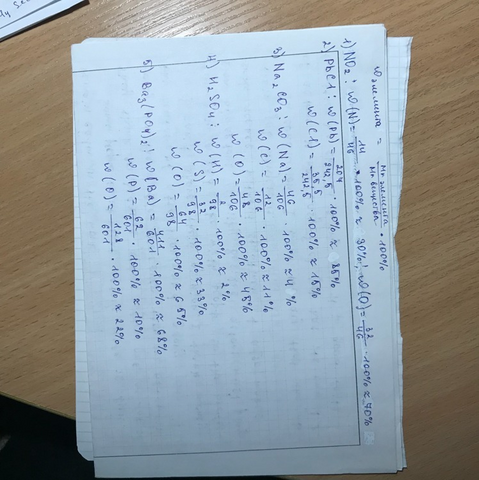 ω элемента = Mr элемента / Mr вещества · 100%
1) NO₂: ω(N) = 14/46 · 100% ≈ 30%; ω(O) = 32/46 · 100% ≈ 70%
2) PbCl: ω(Pb) = 207/242,5 · 100% ≈ 85%
ω(Cl) = 35,5/242,5 · 100% ≈ 15%
3) Na₂CO₃: ω(Na) = 46/106 · 100% ≈ 4 %
ω(C) = 12/106 · 100% ≈ 11%
ω(O) = 48/106 · 100% ≈ 45%
4) H₂SO₄: ω(H) = 2/98 · 100% ≈ 2%
ω(S) = 32/98 · 100% ≈ 33%
ω(O) = 64/98 · 100% ≈ 65%
5) Ba₃(PO₄)₂: ω(Ba) = 411/601 · 100% ≈ 68%
ω(P) = 62/601 · 100% ≈ 10%
ω(O) = 128/601 · 100% ≈ 22%